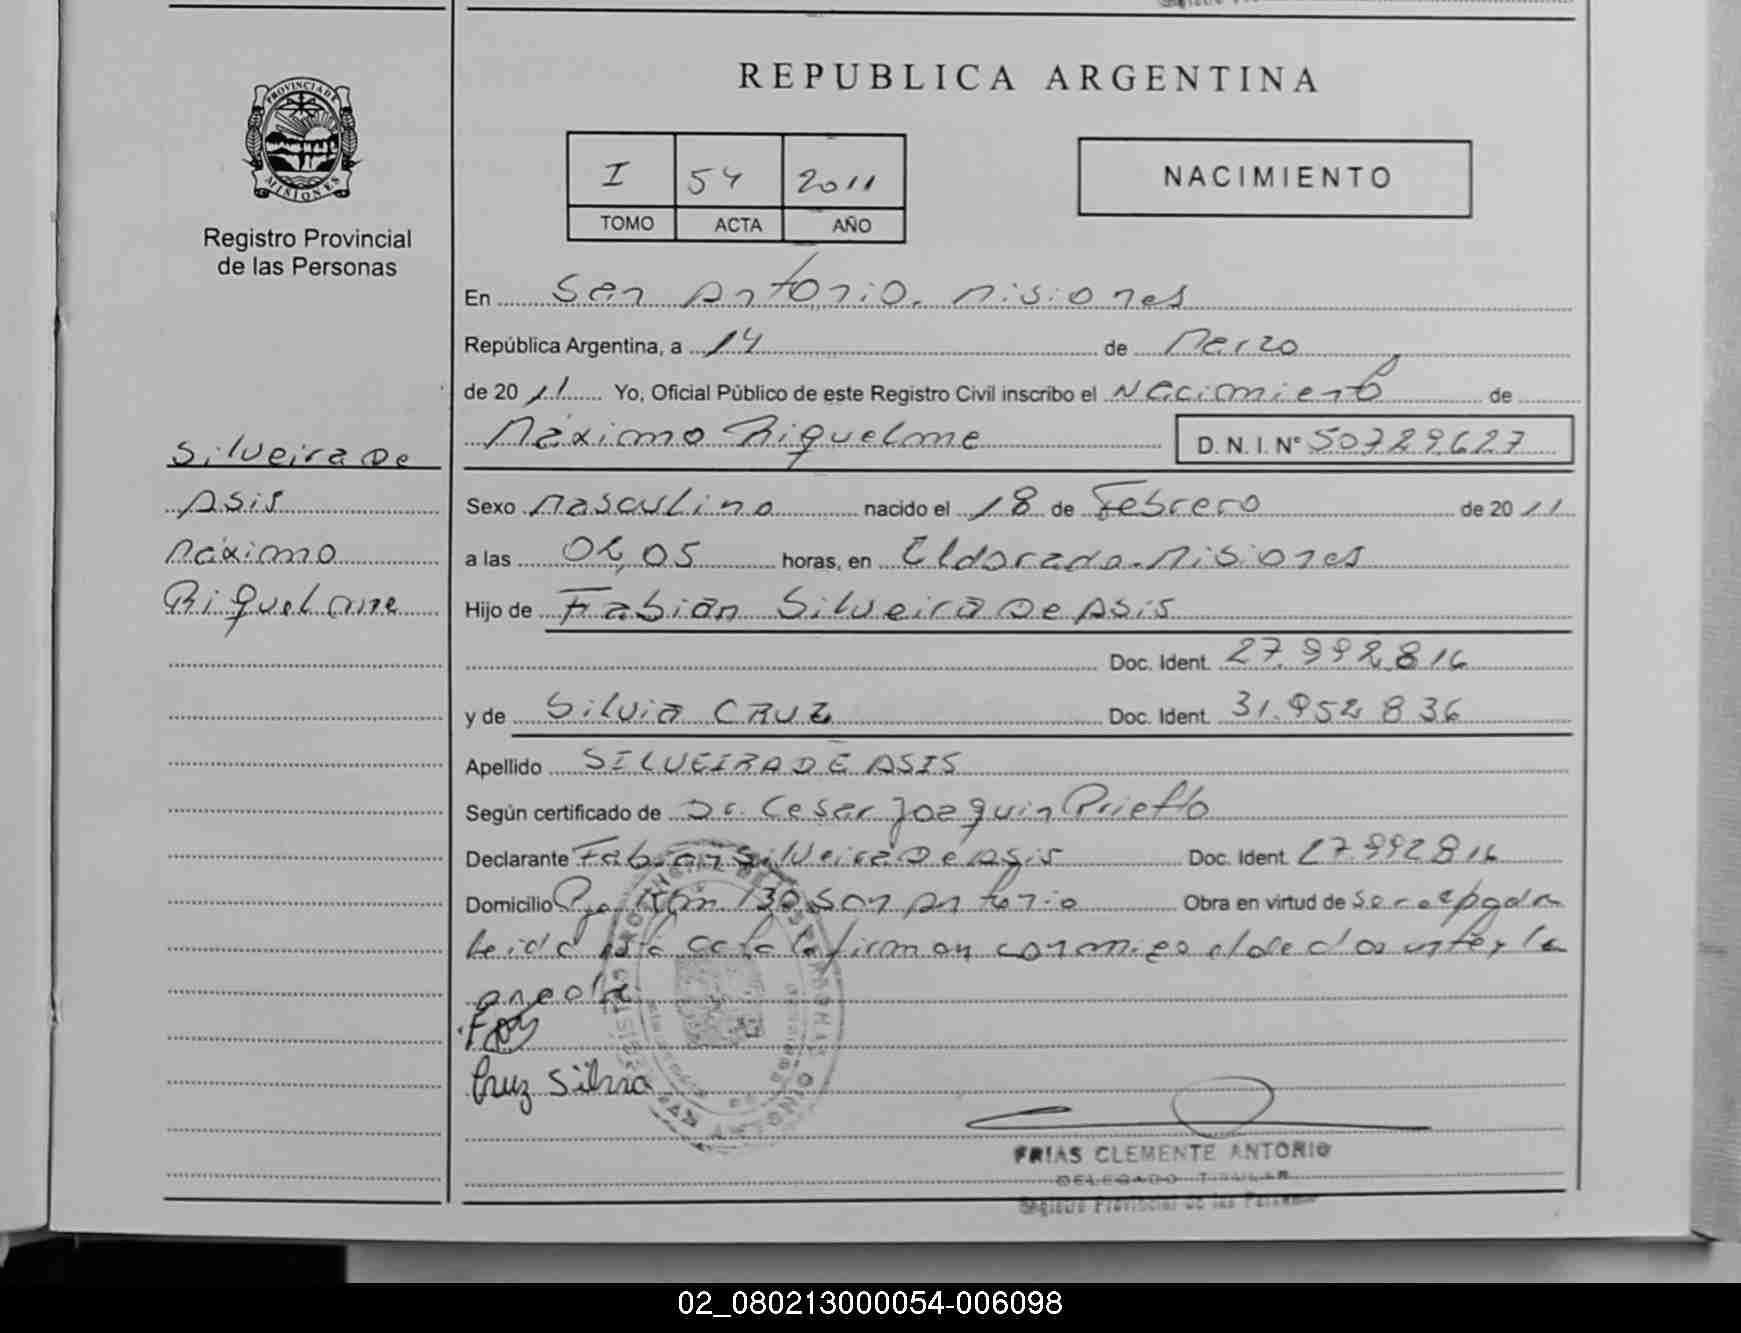 REPUBLICA ARGENTINA
PROVINCIA DE
MISIONES
Registro Provincial
de las Personas
I 54 2011
TOMO ACTA AÑO
NACIMIENTO
En San Antonio. Misiones
República Argentina, a 14 de Marzo
de 2011 Yo, Oficial Público de este Registro Civil inscribo el Nacimiento de
Máximo Riquelme D. N. I. N° 50729627
Silveira De
Asis
Máximo
Riquelme
Sexo Masculino nacido el 18 de Febrero de 2011
a las 06,05 horas, en Eldorado-Misiones
Hijo de Fabián Silveira De Asis
Doc. Ident. 27.992.816
y de Silvia CRUZ Doc. Ident. 31.952.836
Apellido SILVEIRA DE ASIS
Según certificado de Dr. Cesar Joaquin Prietto
Declarante Fabián Silveira De Asis Doc. Ident. 27.992.816
Domicilio 130 San Antonio Obra en virtud de
Leida esta acta la firman conmigo el declarante y la
Cruz Silvia
FRIAS CLEMENTE ANTONIO
DELEGADO TITULAR
Registro Provincial de las Personas
02_080213000054-006098